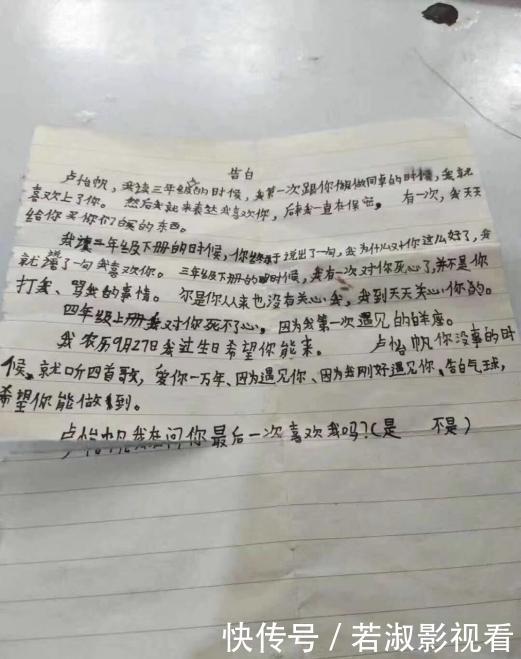 告白
卢怡帆,我读三年级的时候,我第一次跟你做同桌的时候,我就
喜欢上了你。然后我就来表达我喜欢你,后来我一直在保密。有一次,我天天
给你买你们白的东西。
我读三年级下册的时候,你终于说出了一句,我为什么对你这么好了,我
就蹭了一句我喜欢你。三年级下册的时候,我有一次对你死心了,并不是你
打我、骂我的事情。尔是你从来也没有关心我,我到天天关心你的。
四年级上册我对你死不了心,因为我第一次遇见的同座。
我农历9月27日我过生日希望你能来。卢怡帆你没事的时
候、就听四首歌,爱你一万年、因为遇见你、因为我刚好遇见你、告白气球,
希望你能做到。
卢怡帆我在问你最后一次喜欢我吗?(是 不是)
快传号/若淑影视看